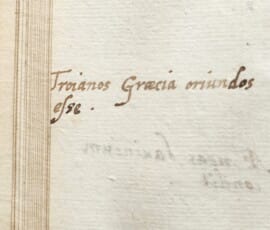 Troianos Græcia oriundos
esse.